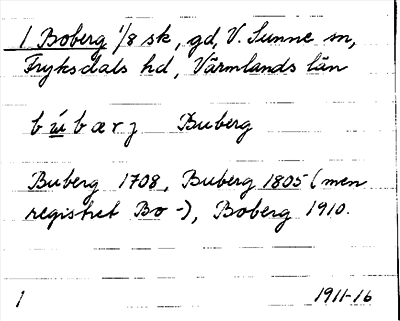 1 Boberg 1/8 sk, gd, V. Sunne sn,
Fryksdals hd, Värmlands län
búbærj Buberg
Buberg 1708, Buberg 1805 (men
registret Bo-), Boberg 1910.
1 1911-16